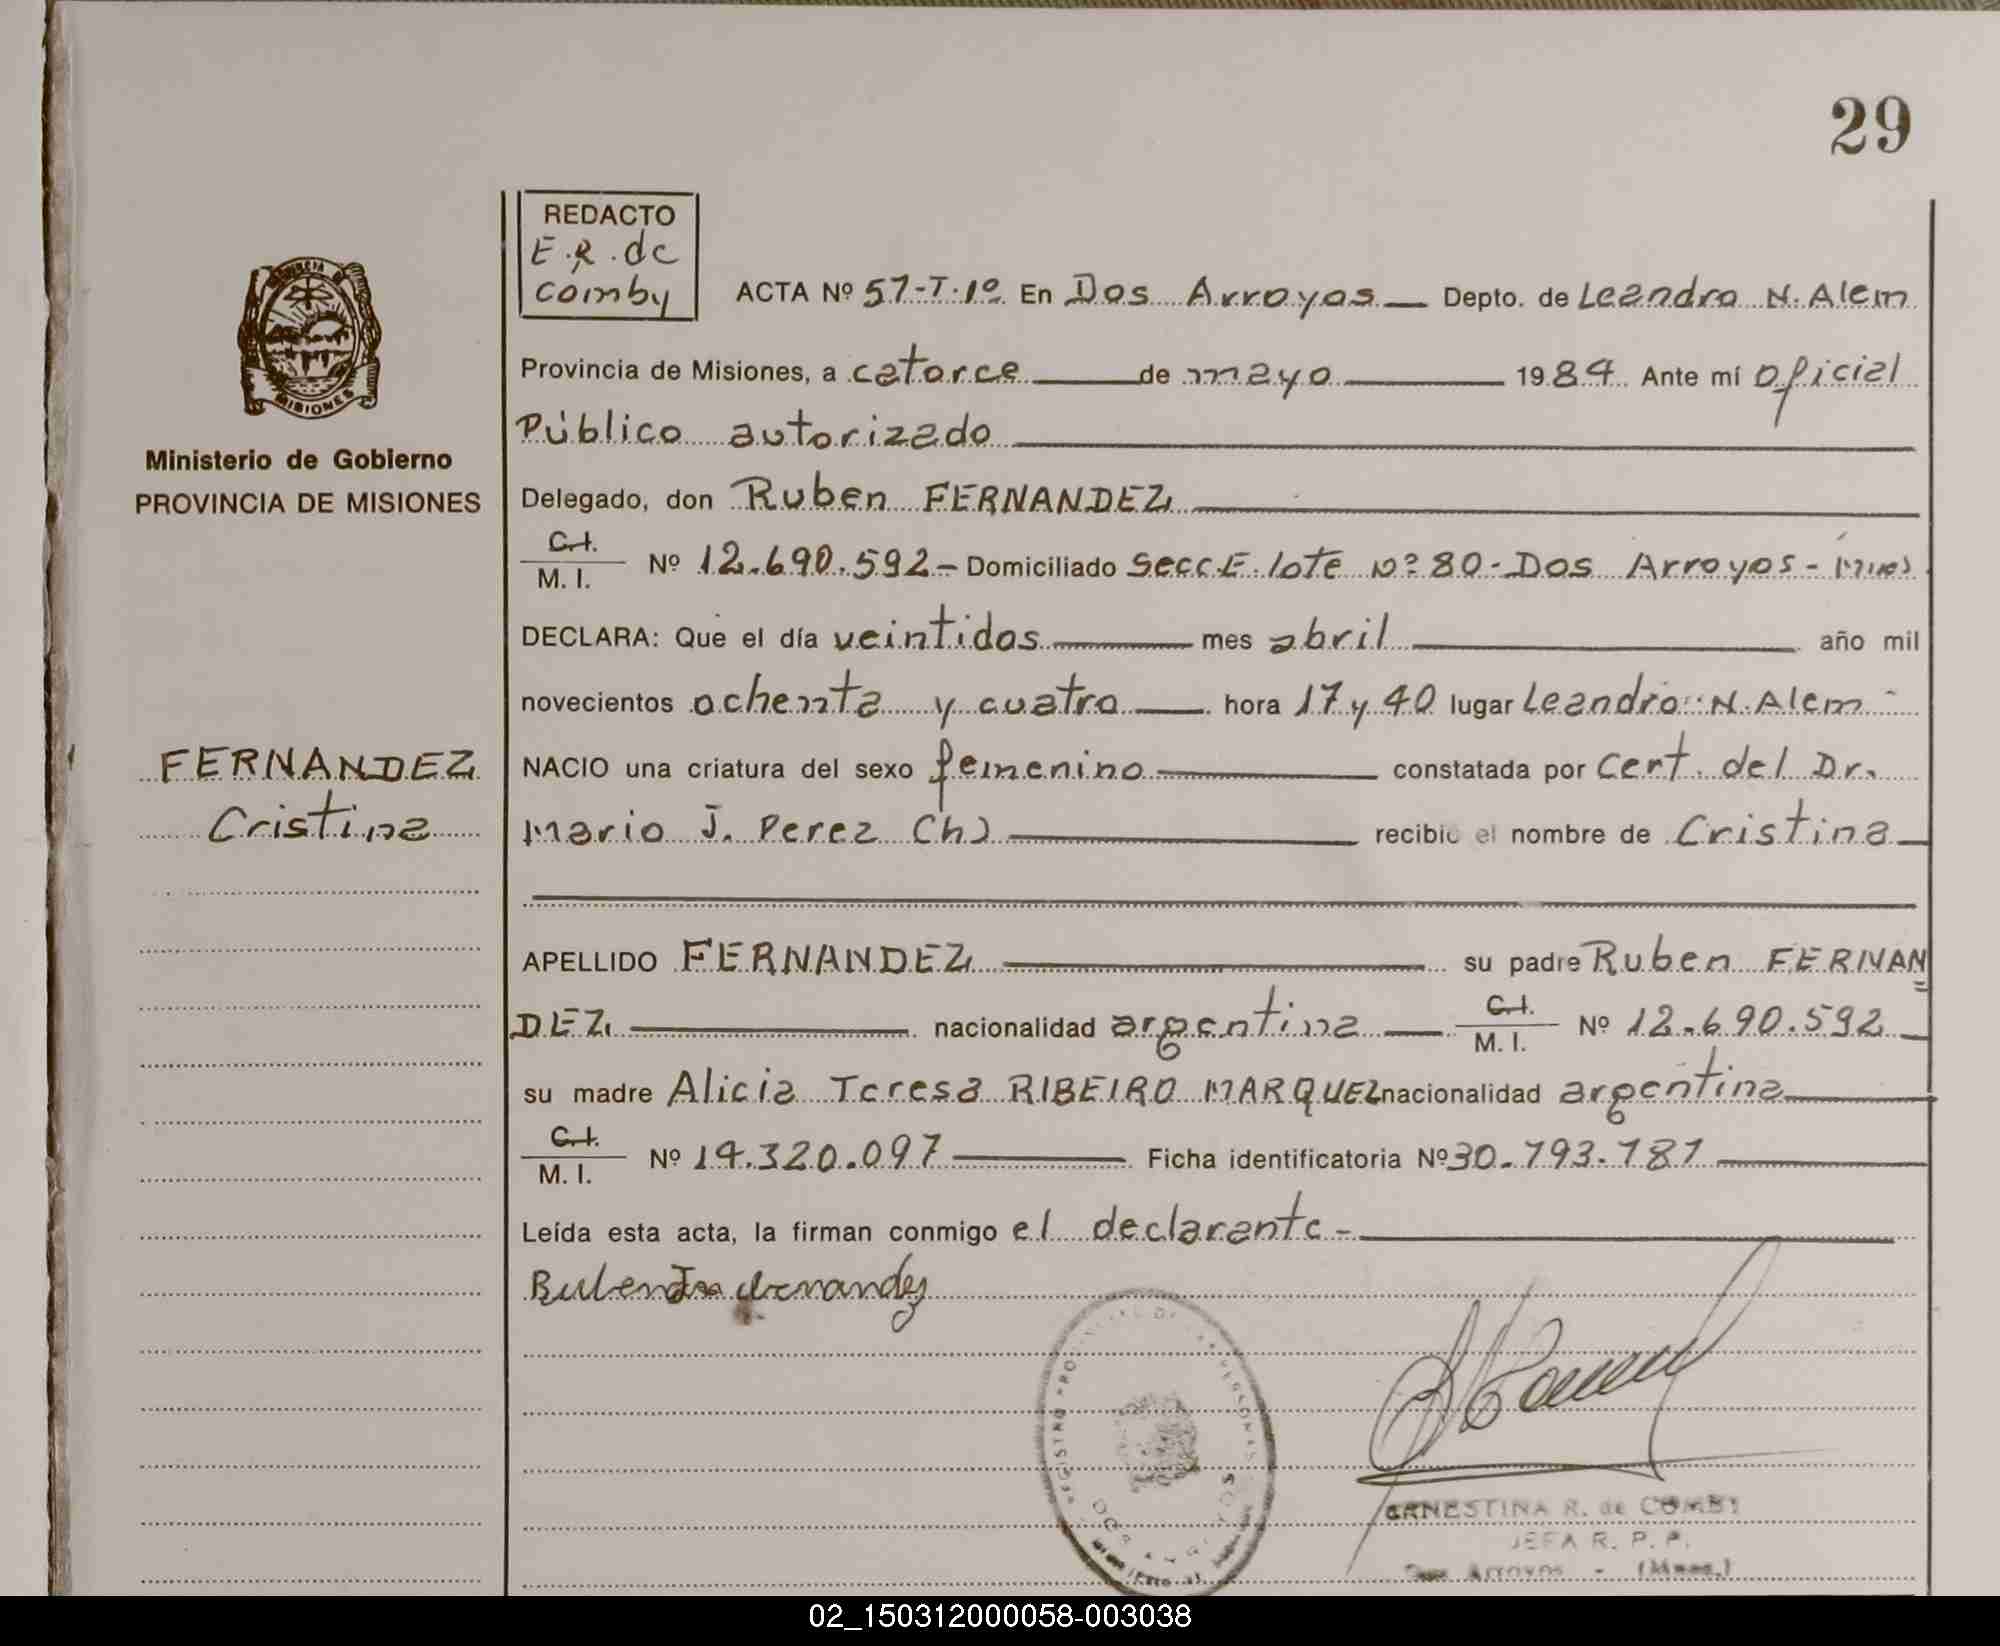 29
REDACTO
E.R. de
Comby
ACTA Nº 57-T.1º En Dos Arroyos Depto. de Leandro N. Alem
Provincia de Misiones, a catorce de mayo 1984 Ante mí Oficial
Público autorizado
Ministerio de Gobierno
PROVINCIA DE MISIONES
Delegado, don Ruben FERNANDEZ
C.I.
M. I. Nº 12.690.592- Domiciliado Secc.E. lote Nº 80- Dos Arroyos - Mnes
DECLARA: Que el día veintidos mes abril año mil
novecientos ochenta y cuatro hora 17 y 40 lugar Leandro N. Alem -
FERNANDEZ
Cristina
NACIO una criatura del sexo femenino constatada por Cert. del Dr.
Mario J. Perez (h) recibio el nombre de Cristina
APELLIDO FERNANDEZ su padre Ruben FERNAN
DEZ nacionalidad argentina C.I.
M. I. Nº 12.690.592
su madre Alicia Teresa RIBEIRO MARQUEZ nacionalidad argentina
C.I.
M. I. Nº 14.320.097 Ficha identificatoria Nº 30.793.781
Leída esta acta, la firman conmigo el declarante-
Ruben Fernandez
ERNESTINA R. de COMBY
JEFA R. P. P.
Dos Arroyos - (Mnes.)
02_150312000058-003038